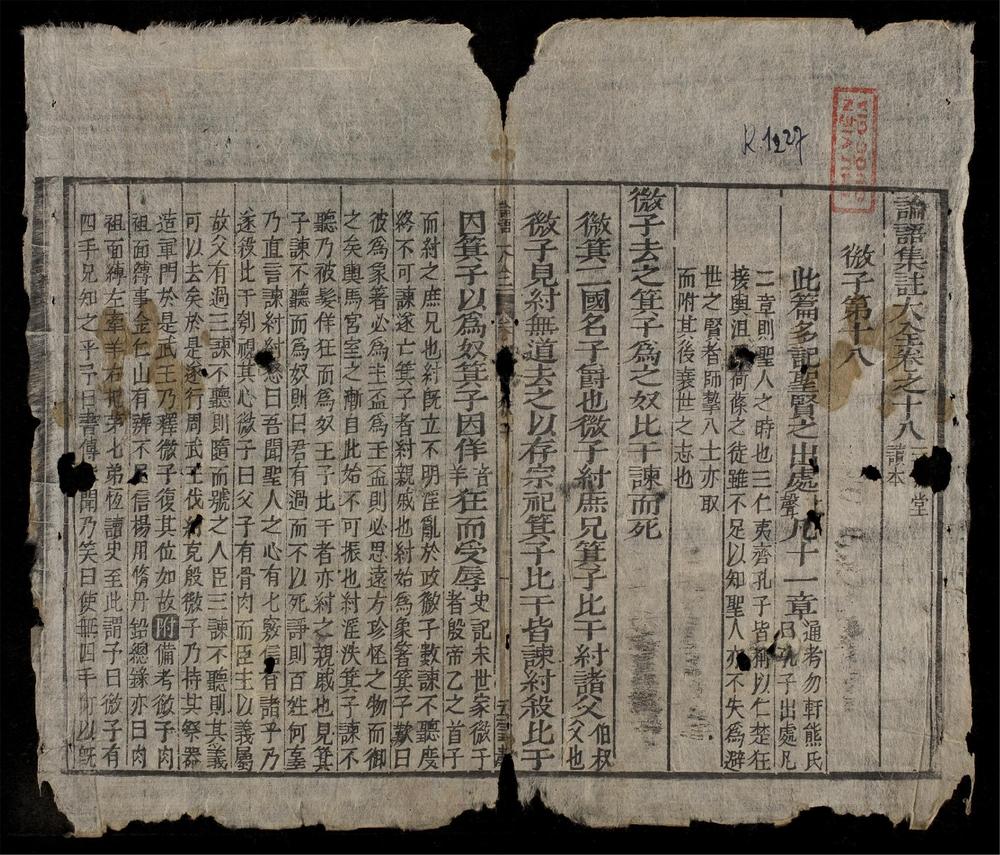 論語集註大全卷之十八 三讀本堂
微子第十八
此篇多記聖賢之出處聲凡十一章通考勿軒熊氏曰孔子出處凡
二章則聖人之時也三仁夷齊孔子皆稱以仁楚狂
接輿沮荷蓧之徒雖不足以知聖人亦不失爲避
世之賢者師摯八士亦取
而附其後衰世之志也
微子去之箕子爲之奴比干諫而死
微箕二國名子爵也微子紂庶兄箕子比干紂諸父伯叔父也
微子見紂無道去之以存宗祀箕子比干皆諫紂殺比干
因箕子以爲奴箕子因佯音羊狂而受辱史記宋世家微子者殷帝乙之首子
而紂之庶兄也紂旣立不明淫亂於政微子數諫不聽度
終不可諫遂亡箕子者紂親戚也紂始爲象箸箕子歎曰
彼爲象箸必爲玉盃爲玉盃則必思遠方珍怪之物而御
之矣輿馬宮室之漸自此始不可振也紂淫泆箕子諫不
聽乃被髮佯狂而爲奴王子比干者亦紂之親戚也見箕
子諫不聽而爲奴則曰君有過而不以死諍則百姓何辜
乃直言諫紂紂怒曰吾聞聖人之心有七竅信有諸乎乃
遂殺比干刳視其心微子曰父子有骨肉而臣主以義屬
故父有過三諫不聽則隨而號之人臣三諫不聽則其義
可以去矣於是遂行周武王伐紂克殷微子乃持其祭器
造軍門於是武王乃釋微子復其位如故附備考微子肉
袒面縛事金仁山有辨不足信楊用脩丹鉛總錄亦曰肉
袒面縛左牽羊右把第七弟恆讀史至此謂予曰微子有
四手兄知之乎予曰書傳聞乃笑曰使無四手何以旣
R.1227